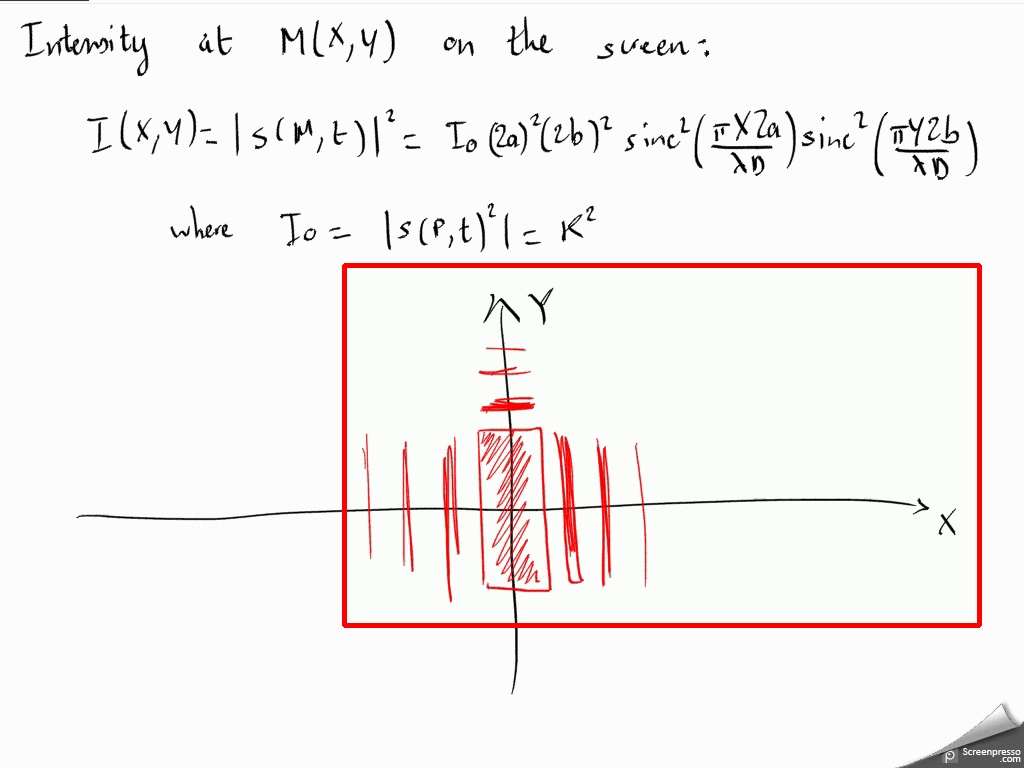 Intensity at M(X,Y) on the screen:
I(X,Y)=|s(M,t)|²= I₀(2a)²(2b)² sinc²(πX2a/λD)sinc²(πY2b/λD)
where I₀ = |s(P,t)²|= K²
Y
X
Screenpresso
.com